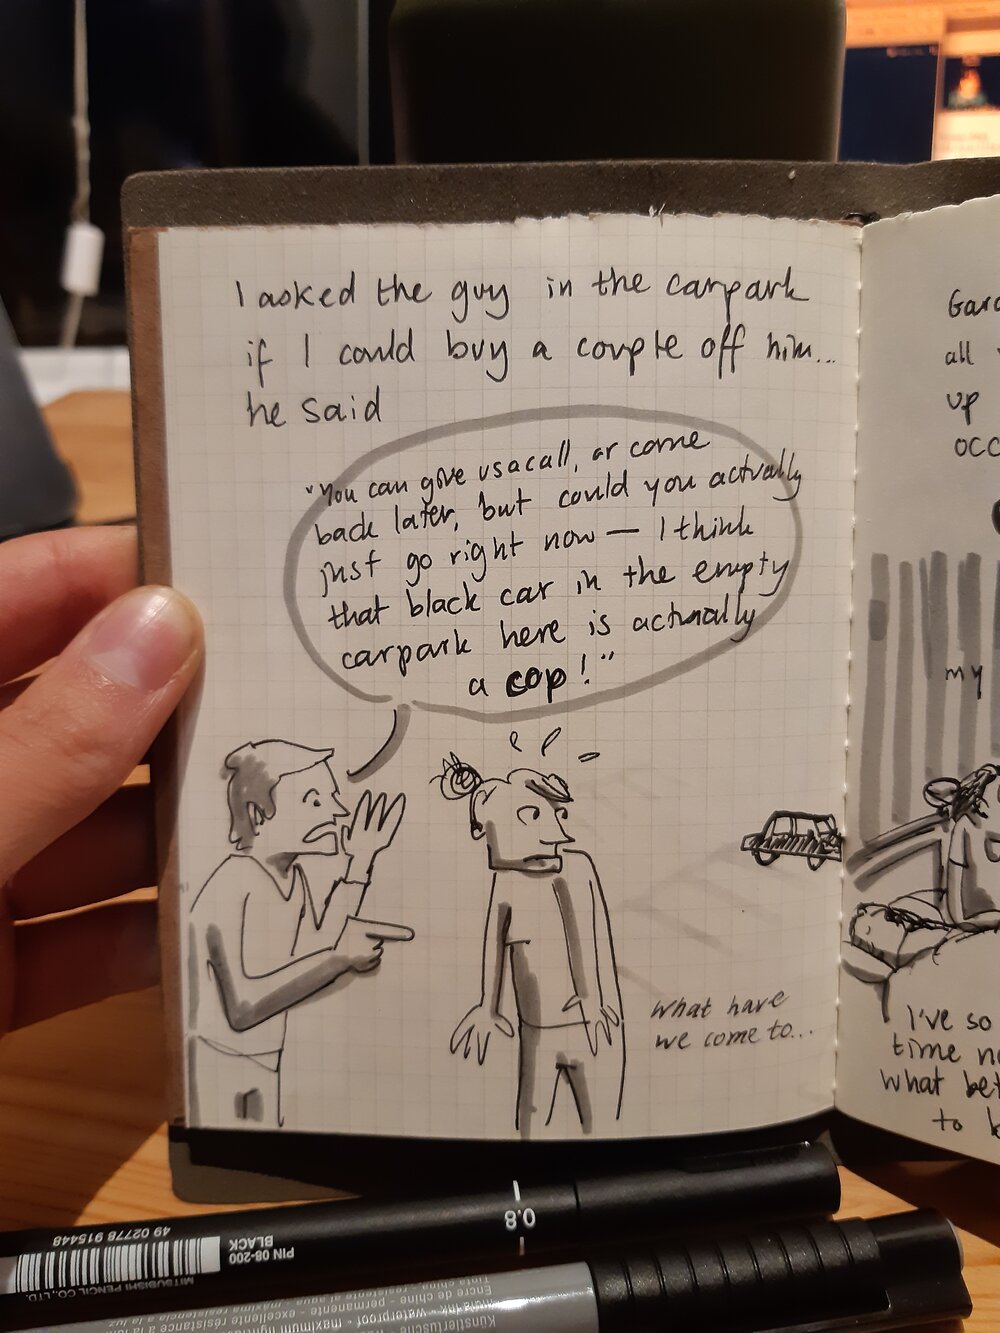 I asked the guy in the carpark
if I could buy a couple off him...
he said
"You can give us a call, or come
back later, but could you actually
just go right now — I think
that black car in the empty
carpark here is actually
a cop!"
What have
we come to...
all
up
my
I've so
time
what
to
0.8
49 02778 915448
PIN 08-200
BLACK
MITSUBISHI PENCIL CO., LTD.